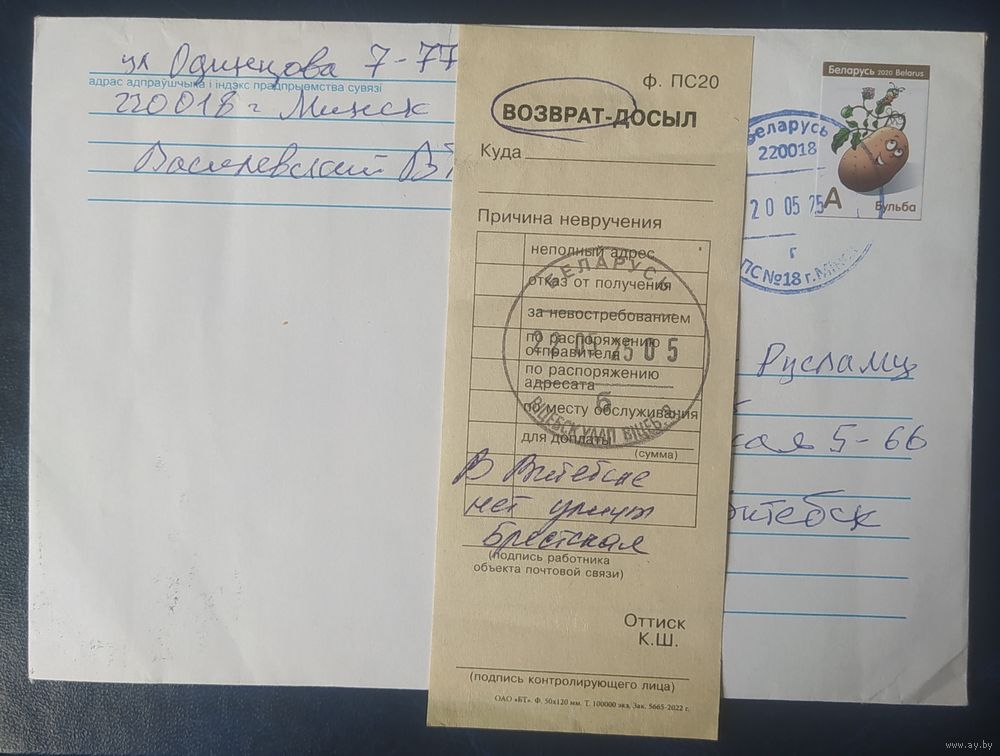 ул Одинцова 7-77
адрас адпраўшчыка і індэкс прадпрыемства сувязі
220018 г Минск
Василевский В
ф. ПС20
ВОЗВРАТ-ДОСЫЛ
Куда
Причина невручения
неполный адрес
отказ от получения
за невостребованием
по распоряжению
отправителя
по распоряжению
адресата
по месту обслуживания
для доплаты
(сумма)
БЕЛАРУСЬ
22 05 25 05
б
ВІЦЕБСК
В Витебске
нет улицы
Брестская
(подпись работника
объекта почтовой связи)
Оттиск
К.Ш.
(подпись контролирующего лица)
ОАО «БТ». Ф. 50х120 мм. Т. 100000 экз. Зак. 5665-2022 г.
Беларусь 2020 Belarus
А
Бульба
Беларусь
220018
20 05 25
г
ПС №18 г.
кая 5-66
Витебск
www.ay.by